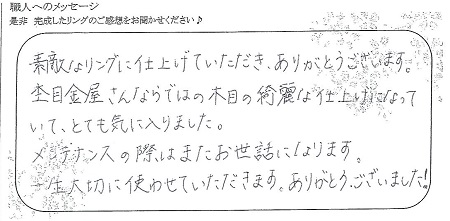 職人へのメッセージ
是非 完成したリングのご感想をお聞かせください♪
素敵なリングに仕上げていただき、ありがとうございます。
杢目金屋さんならではの木目の綺麗な仕上げになって
いて、とても気に入りました。
メンテナンスの際はまたお世話になります。
一生大切に使わせていただきます。ありがとうございました!